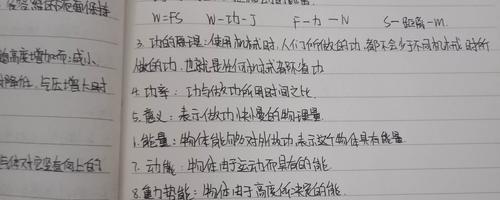 W=FS W-功-J F-力-N S-距离-m.
3. 功的原理:使用机械时,人们所做的功,都不会少于不用机械时所
做的功,也就是任何机械都不省功
4. 功率:功与做功所用时间之比.
5. 意义:表示做功快慢的物理量.
6. 能量:物体能够对外做功,表示这个物体具有能量
7. 动能:物体由于运动而具有的能
8. 重力势能:物体由于高度所决定的能.
高度增加而减小.